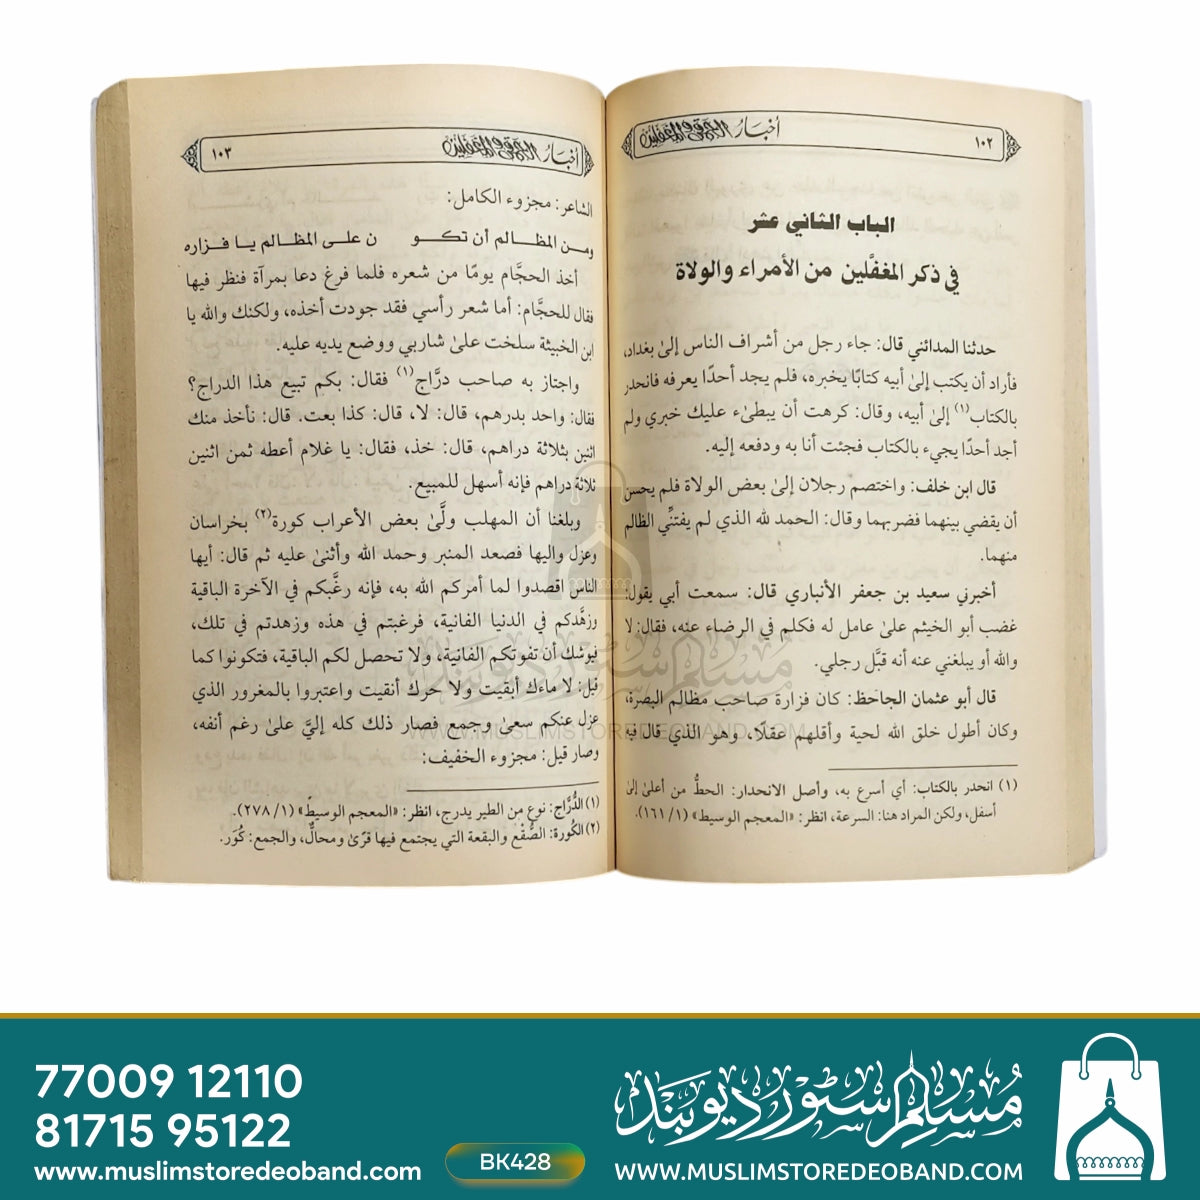 ١٠٢
أخبار الحمقى والمغفلين
الباب الثاني عشر
في ذكر المغفَّلين من الأمراء والولاة
حدثنا المدائني قال: جاء رجل من أشراف الناس إلىٰ بغداد،
فأراد أن يكتب إلىٰ أبيه كتابًا يخبره، فلم يجد أحدًا يعرفه فانحدر
بالكتاب(١) إلىٰ أبيه، وقال: كرهت أن يبطىء عليك خبري ولم
أجد أحدًا يجيء بالكتاب فجئت أنا به ودفعه إليه.
قال ابن خلف: واختصم رجلان إلىٰ بعض الولاة فلم يحسن
أن يقضي بينهما فضربهما وقال: الحمد لله الذي لم يفتنِّي الظالم
منهما.
أخبرني سعيد بن جعفر الأنباري قال: سمعت أبي يقول:
غضب أبو الخيثم علىٰ عامل له فكلم في الرضاء عنه، فقال: لا
والله أو يبلغني عنه أنه قبَّل رجلي.
قال أبو عثمان الجاحظ: كان فزارة صاحب مظالم البصرة،
وكان أطول خلق الله لحية وأقلهم عقلًا، وهو الذي قال فيه
(١) انحدر بالكتاب: أي أسرع به، وأصل الانحدار: الحطُّ من أعلىٰ إلىٰ
أسفل، ولكن المراد هنا: السرعة، انظر: «المعجم الوسيط» (١/١٦١).
أخبار الحمقى والمغفلين
١٠٣
الشاعر: مجزوء الكامل:
ومن المظالم أن تكو ن على المظالم يا فزاره
أخذ الحجَّام يومًا من شعره فلما فرغ دعا بمرآة فنظر فيها
فقال للحجَّام: أما شعر رأسي فقد جودت أخذه، ولكنك والله يا
ابن الخبيثة سلخت علىٰ شاربي ووضع يديه عليه.
واجتاز به صاحب درَّاج(١) فقال: بكم تبيع هذا الدراج؟
فقال: واحد بدرهم، قال: لا، قال: كذا بعت. قال: نأخذ منك
اثنين بثلاثة دراهم، قال: خذ، فقال: يا غلام أعطه ثمن اثنين
ثلاثة دراهم فإنه أسهل للمبيع.
وبلغنا أن المهلب ولَّىٰ بعض الأعراب كورة(٢) بخراسان
وعزل واليها فصعد المنبر وحمد الله وأثنىٰ عليه ثم قال: أيها
الناس اقصدوا لما أمركم الله به، فإنه رغَّبكم في الآخرة الباقية
وزهَّدكم في الدنيا الفانية، فرغبتم في هذه وزهدتم في تلك،
فيوشك أن تفوتكم الفانية، ولا تحصل لكم الباقية، فتكونوا كما
قيل: لا ماءك أبقيت ولا حرك أنقيت واعتبروا بالمغرور الذي
عزل عنكم سعىٰ وجمع فصار ذلك كله إليَّ علىٰ رغم أنفه،
وصار قيل: مجزوء الخفيف:
(١) الدُّرَّاج: نوع من الطير يدرج، انظر: «المعجم الوسيط» (١/٢٧٨).
(٢) الكُورة: الصُّقْع والبقعة التي يجتمع فيها قرىٰ ومحالٌ، والجمع: كُوَر.
مسلم سٹور دیوبند
WWW.MUSLIMSTOREDEOBAND.COM
77009 12110
81715 95122
www.muslimstoredeoband.com
BK428
مسلم سٹور دیوبند
WWW.MUSLIMSTOREDEOBAND.COM